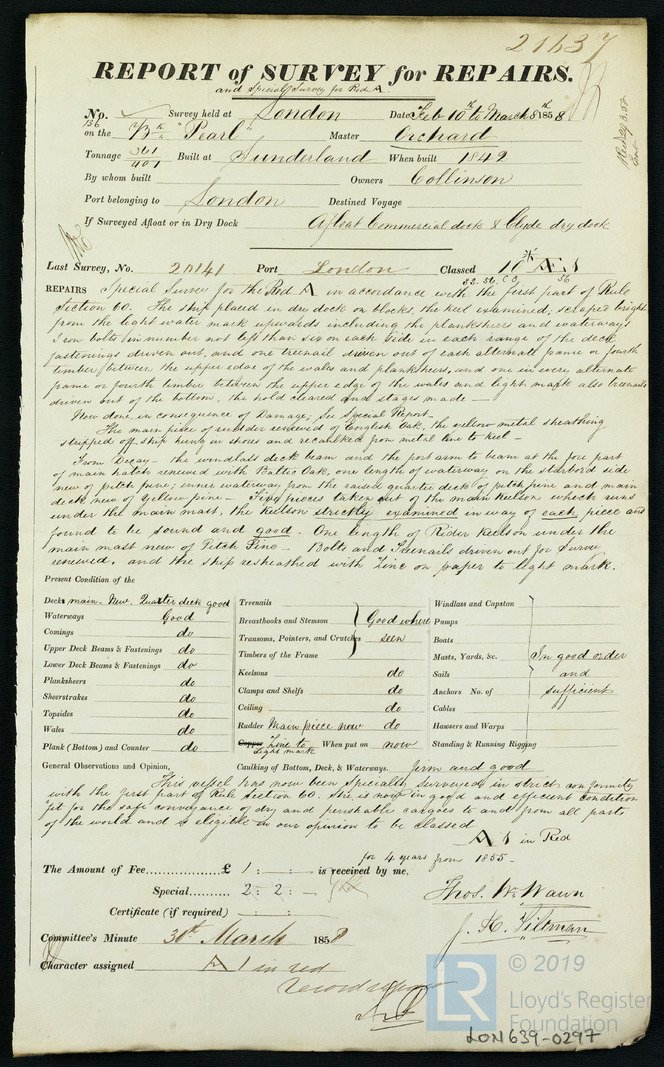 21637
REPORT of SURVEY for REPAIRS.
and Special Survey for Red A
No. Survey held at London Date Feb 10th to March 8th 1858
136
on the Bk "Pearl" Master Orchard
Tonnage 361/401 Built at Sunderland When built 1842
By whom built Owners Collinson
Port belonging to London Destined Voyage
If Surveyed Afloat or in Dry Dock Afloat Commercial dock & Clyde dry dock
Last Survey, No. 20141 Port London Classed 10 * Æ 1
REPAIRS Special Survey for the Red A in accordance with the first part of Rule
Section 60. The ship placed in dry dock on blocks, the keel examined, scraped bright
from the light water mark upwards including the planksheers and waterways
Iron bolts in number not less than six on each side in each range of the deck
fastenings driven out, and one treenail driven out of each alternate frame or fourth
timber between the upper edge of the wales and planksheers, and one in every alternate
frame or fourth timber between the upper edge of the wales and light mark also treenails
driven out of the bottom, the hold cleared and stages made —
Now done, in consequence of Damage, See Special Report —
The main piece of rudder renewed of English Oak, the yellow metal sheathing
stripped off ship hung in shores and recaulked from metal line to keel —
From Decay — the windlass deck beam and the port arm to beam at the fore part
of main hatch renewed with Baltic Oak, one length of waterway on the starbord side
new of pitch pine; inner waterway from the raised quarter deck of pitch pine and main
deck new of Yellow pine — Five pieces taken out of the main Keelson which runs
under the main mast, the Keelson strictly examined in way of each piece and
found to be sound and good. One length of Rider Keelson under the
main mast new of Pitch Pine — Bolts and Treenails driven out for Survey
renewed, and the ship resheathed with Zinc on paper to light mark.
Present Condition of the
Decks main New. Quarter deck good
Waterways Good
Comings do
Upper Deck Beams & Fastenings do
Lower Deck Beams & Fastenings do
Planksheers do
Sheerstrakes do
Topsides do
Wales do
Plank (Bottom) and Counter do
Treenails
Breasthooks and Stemson Good where
Transoms, Pointers, and Crutches seen
Timbers of the Frame
Keelsons do
Clamps and Shelfs do
Ceiling do
Rudder Main piece new do
Copper Zinc to When put on now
light mark
Windlass and Capstan
Pumps
Boats
Masts, Yards, &c. In good order
Sails and
Anchors No. of sufficient
Cables
Hawsers and Warps
Standing & Running Rigging
General Observations and Opinion, Caulking of Bottom, Deck, & Waterways. firm and good
This vessel has now been Specially Surveyed in strict conformity
with the first part of Rule Section 60. She is now in good and efficient condition
fit for the safe conveyance of dry and perishable cargoes to and from all parts
of the world and is eligible in our opinion to be classed
A 1 in Red
for 4 years from 1855 —
The Amount of Fee £ 1 : — : — is received by me,
Special 2 : 2 : —
Certificate (if required)
Thos. W. Wawn
J. H. Tiltman
Committee's Minute 30th March 1858
Character assigned A 1 in red
LR © 2019
Lloyd's Register
Foundation
LON639-0297